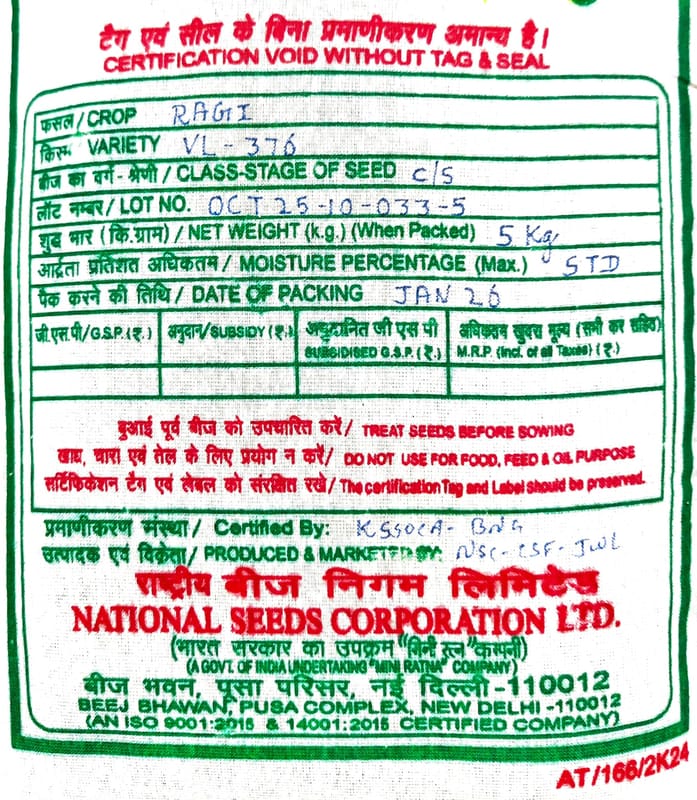 टैग एवं सील के बिना प्रमाणीकरण अमान्य है।
CERTIFICATION VOID WITHOUT TAG & SEAL
फसल / CROP RAGI
किस्म VARIETY VL - 376
बीज का वर्ग - श्रेणी / CLASS-STAGE OF SEED C/S
लॉट नम्बर / LOT NO. OCT 25-10-033-5
शुद्ध भार (कि.ग्राम) / NET WEIGHT (k.g.) (When Packed) 5 Kg
आर्द्रता प्रतिशत अधिकतम / MOISTURE PERCENTAGE (Max.) STD
पैक करने की तिथि / DATE OF PACKING JAN 26
जी.एस.पी/G.S.P. (₹.) अनुदान/SUBSIDY (₹.) अनुदानित जी एस पी अधिकतम खुदरा मूल्य (सभी कर सहित)
SUBSIDISED G.S.P. (₹.) M.R.P. (incl. of all Taxes) (₹.)
बुआई पूर्व बीज को उपचारित करें / TREAT SEEDS BEFORE SOWING
खाद्य, चारा एवं तेल के लिए प्रयोग न करें / DO NOT USE FOR FOOD, FEED & OIL PURPOSE
सर्टिफिकेशन टैग एवं लेबल को संरक्षित रखें / The certification Tag and Label should be preserved.
प्रमाणीकरण संस्था / Certified By: KSSOCA - BNG
उत्पादक एवं विक्रेता / PRODUCED & MARKETED BY: NSC - CSF - JWL
राष्ट्रीय बीज निगम लिमिटेड
NATIONAL SEEDS CORPORATION LTD.
(भारत सरकार का उपक्रम "मिनी रत्न" कम्पनी)
(A GOVT. OF INDIA UNDERTAKING "MINI RATNA" COMPANY)
बीज भवन, पूसा परिसर, नई दिल्ली -110012
BEEJ BHAWAN, PUSA COMPLEX, NEW DELHI -110012
(AN ISO 9001:2015 & 14001:2015 CERTIFIED COMPANY)
AT/166/2K24